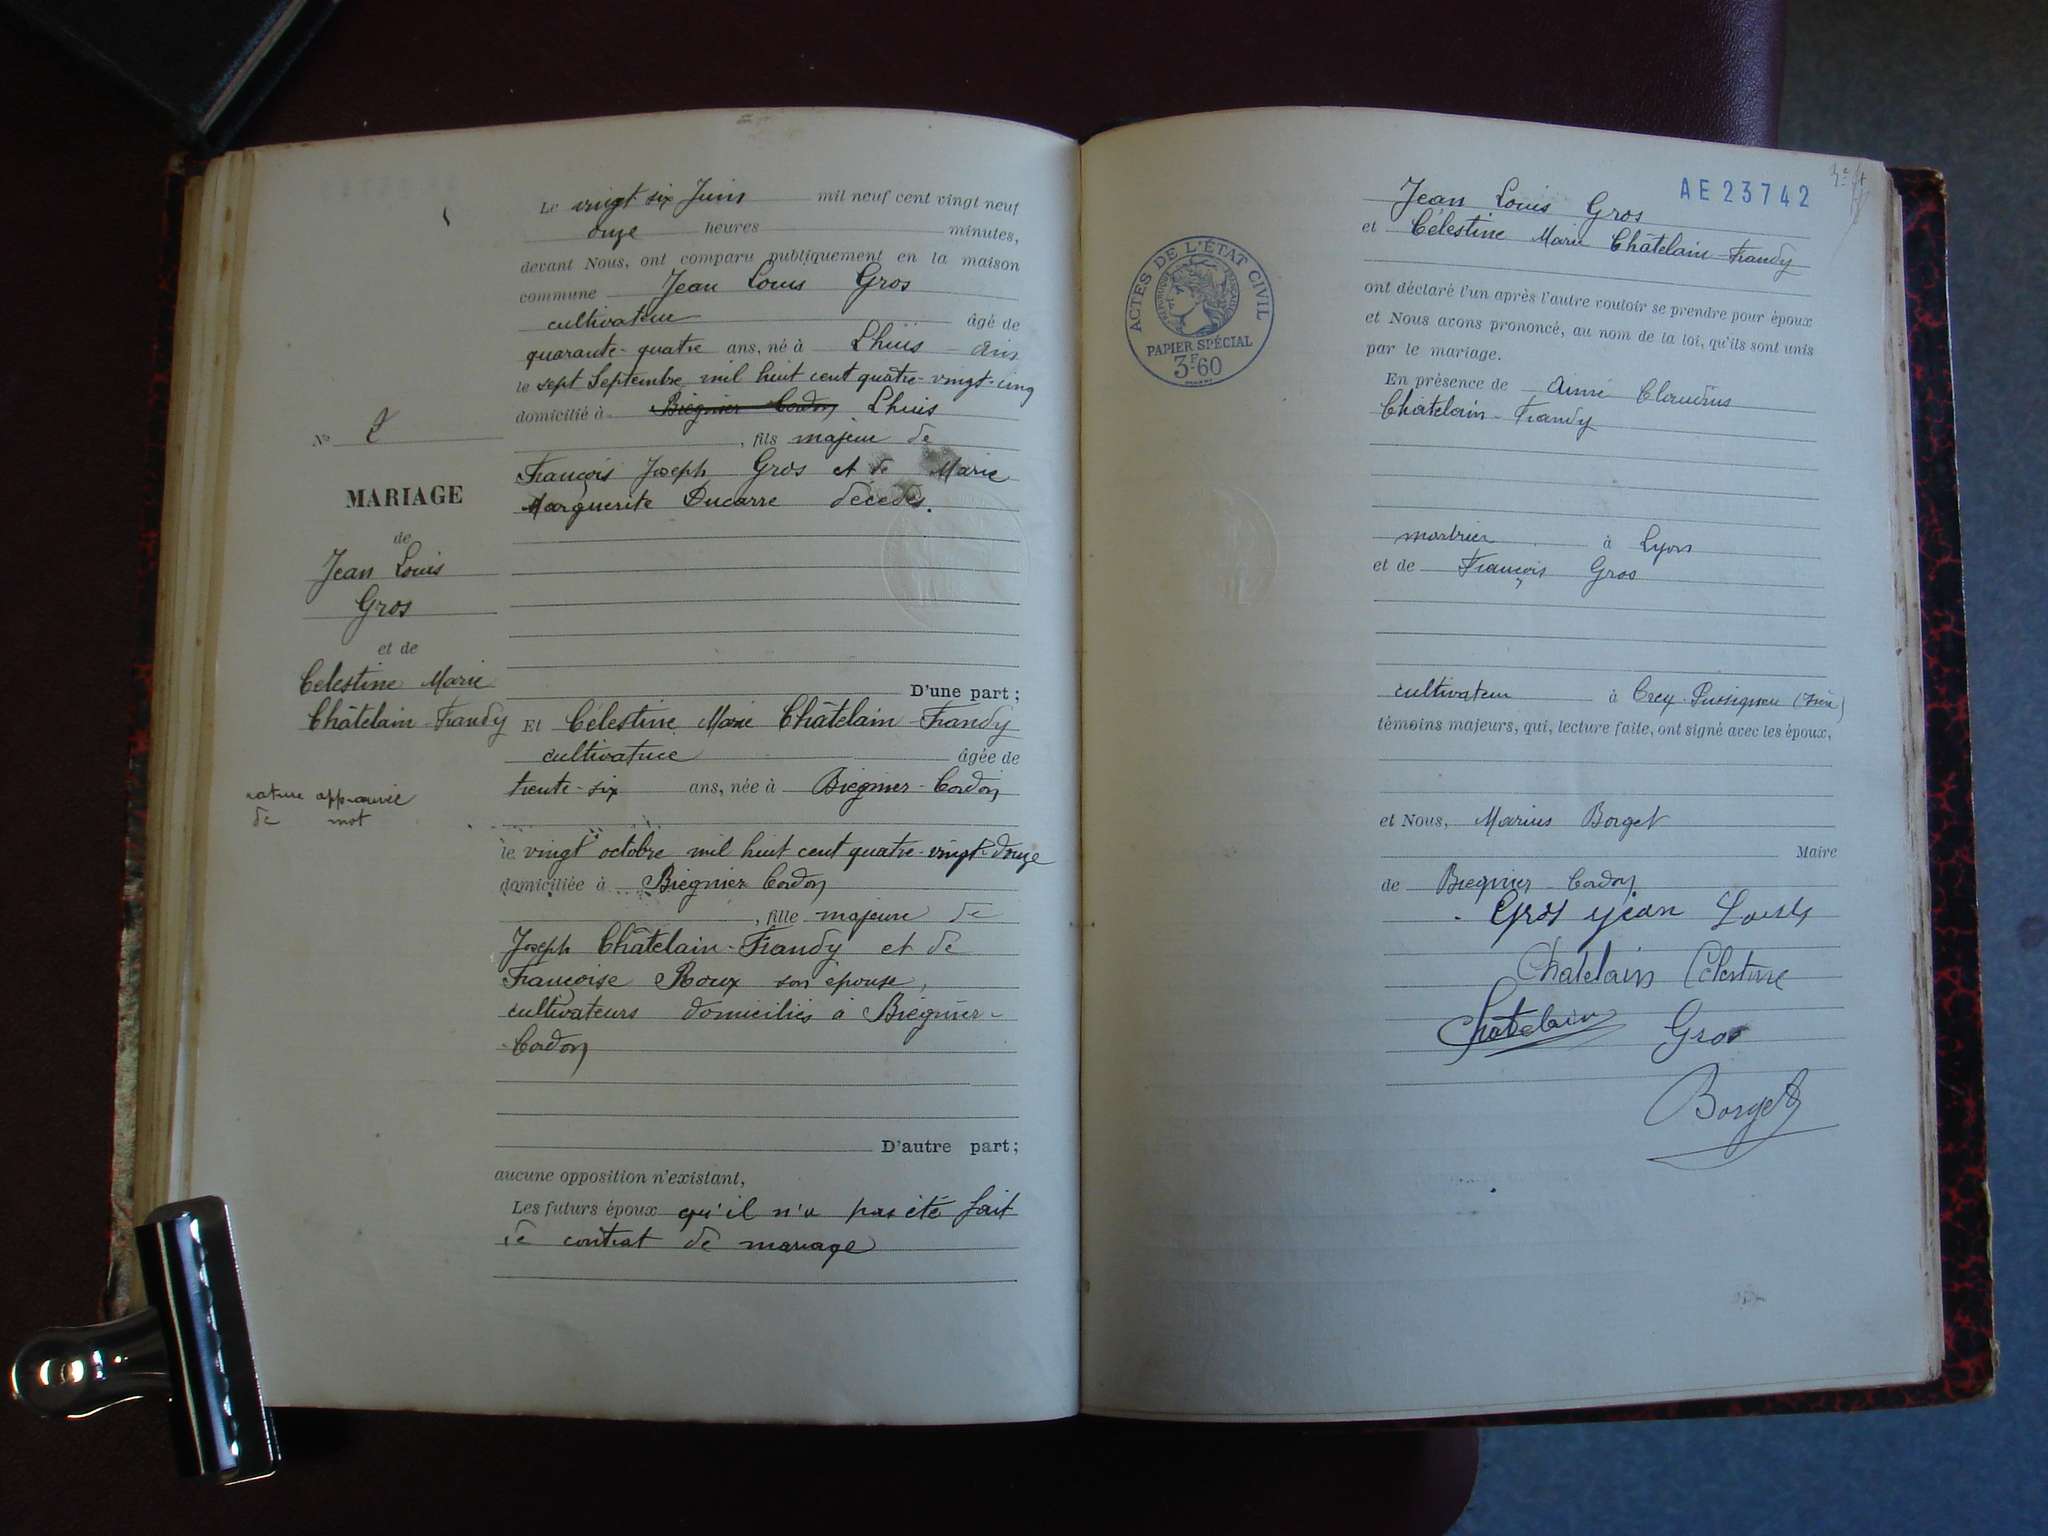 Le vingt six Juin mil neuf cent vingt neuf
onze heures minutes,
devant Nous, ont comparu publiquement en la maison
commune Jean Louis Gros
cultivateur âgé de
quarante-quatre ans, né à Lhuis - Ain
le sept Septembre mil huit cent quatre-vingt-cinq
domicilié à Brégnier Cordon Lhuis
, fils majeur de
François Joseph Gros et de Marie
Marguerite Ducarre décédés.
No
MARIAGE
de
Jean Louis
Gros
et de
Célestine Marie
Châtelain-Frandy
rature approuvée
de mot
D'une part ;
Et Célestine Marie Châtelain-Frandy
cultivatrice âgée de
trente-six ans, née à Brégnier-Cordon
le vingt octobre mil huit cent quatre-vingt-douze
domiciliée à Brégnier Cordon
, fille majeure de
Joseph Châtelain-Frandy et de
Françoise Roux son épouse,
cultivateurs domiciliés à Brégnier-
-Cordon
D'autre part ;
aucune opposition n'existant,
Les futurs époux qu'il n'a pas été fait
de contrat de mariage
AE 23742
Jean Louis Gros
et Célestine Marie Châtelain-Frandy
ACTES DE L'ÉTAT CIVIL
PAPIER SPÉCIAL
3F60
ont déclaré l'un après l'autre vouloir se prendre pour époux
et Nous avons prononcé, au nom de la loi, qu'ils sont unis
par le mariage.
En présence de Aimé Claudius
Châtelain-Frandy
marbrier à Lyon
et de François Gros
cultivateur à Creys-Pusignieu (Isère)
témoins majeurs, qui, lecture faite, ont signé avec les époux,
et Nous, Marius Borget
Maire
de Brégnier-Cordon
Gros Jean Louis
Chatelain Célestine
Chatelain Gros
Borget